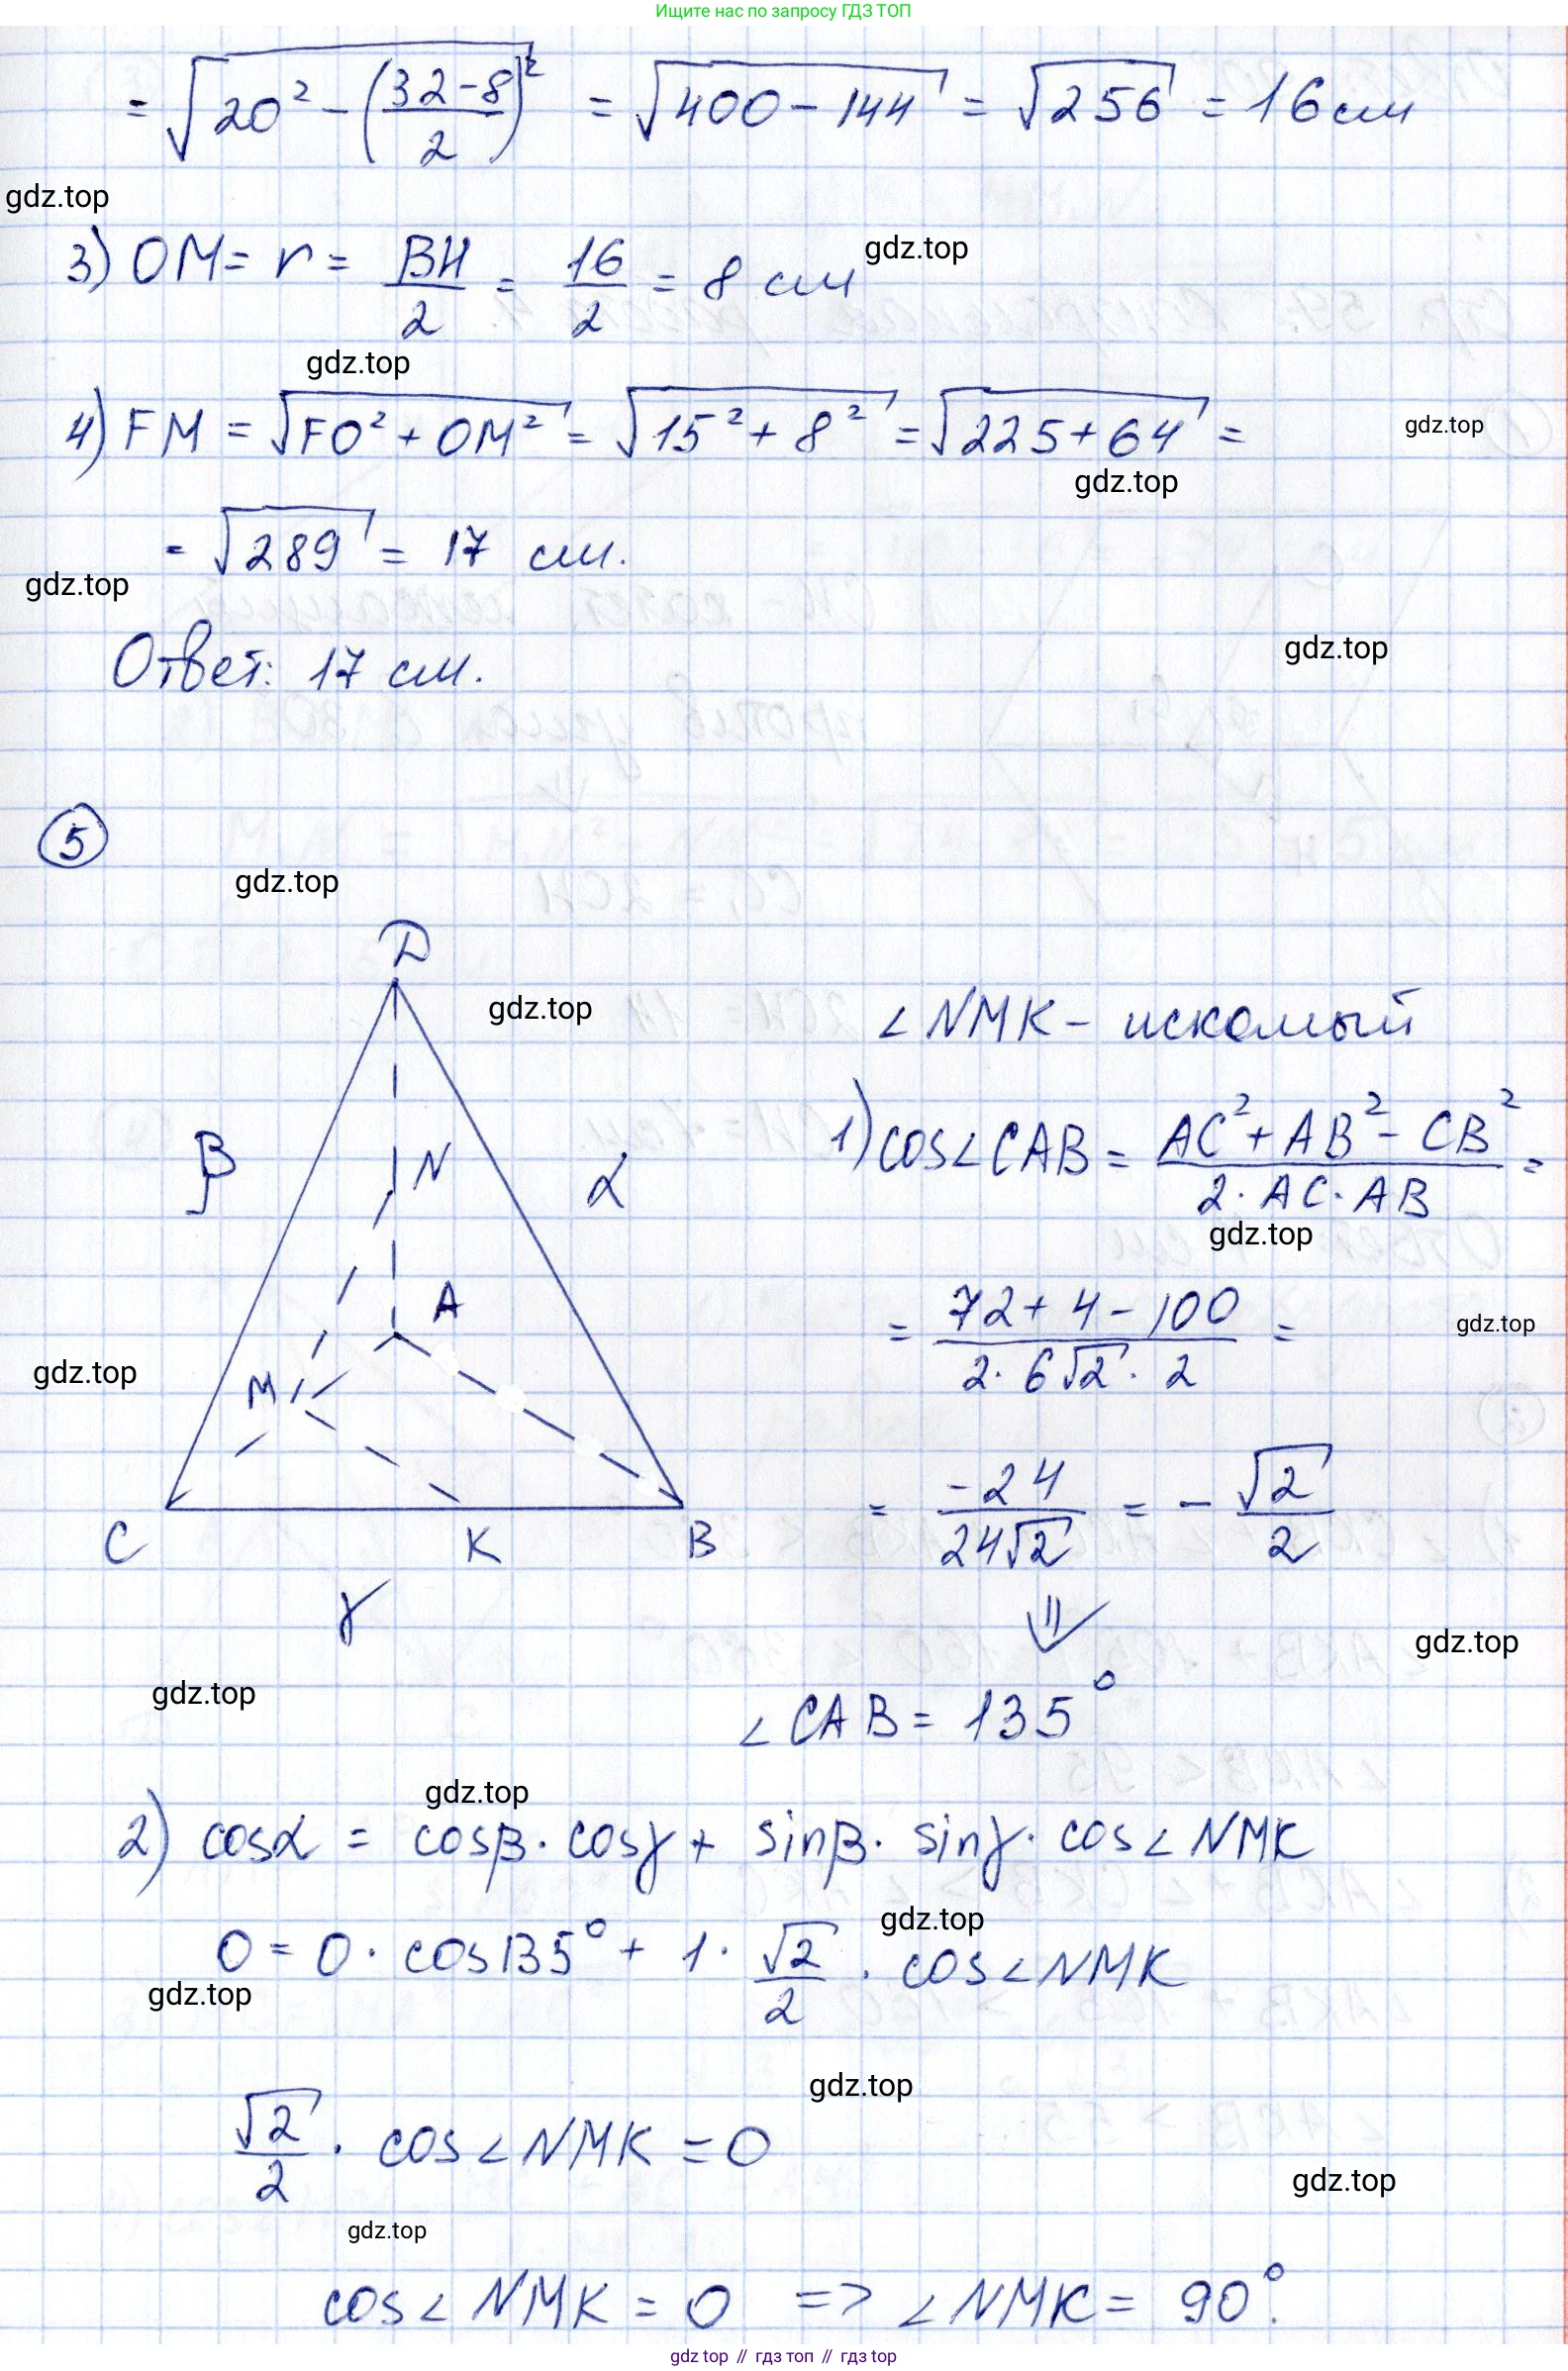 Ищите нас по запросу ГДЗ ТОП
= √(20² - ((32-8)/2)²) = √(400-144) = √256 = 16 см
gdz.top
3) OM = r = BH/2 = 16/2 = 8 см
gdz.top
gdz.top
4) FM = √(FO² + OM²) = √(15² + 8²) = √(225+64) =
gdz.top
gdz.top
= √289 = 17 см.
gdz.top
Ответ: 17 см.
gdz.top
5
gdz.top
D
gdz.top
∠NMK - искомый
β
N
α
1) cos∠CAB = (AC² + AB² - CB²)/(2·AC·AB) =
gdz.top
A
= (72+4-100)/(2·6√2·2) =
gdz.top
gdz.top
M
= -24/(24√2) = -√2/2
C
K
B
γ
⇓
gdz.top
gdz.top
∠CAB = 135°
gdz.top
2) cosα = cosβ · cosγ + sinβ · sinγ · cos∠NMK
gdz.top
0 = 0 · cos135° + 1 · √2/2 · cos∠NMK
gdz.top
gdz.top
√2/2 · cos∠NMK = 0
gdz.top
gdz.top
cos∠NMK = 0 => ∠NMK = 90°.
gdz.top // гдз топ // гдз top